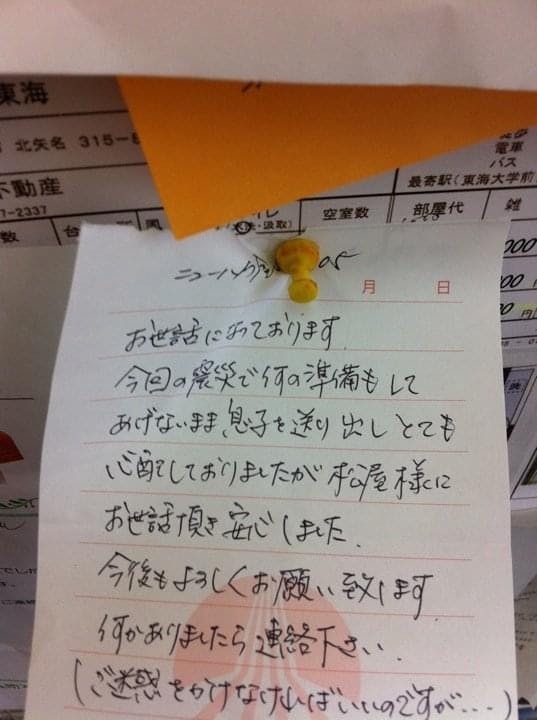 東海
北矢名 315-
電車
バス
不動産
最寄駅(東海大学前
-2337
空室数
部屋代
雑
ニューハイツ
05
月 日
お世話になっております
今回の震災で何の準備もして
あげないまま、息子を送り出しとても
心配しておりましたが松屋様に
お世話頂き安心しました.
今後もよろしくお願い致します
何かありましたら連絡下さい.
(ご迷惑をかけなければいいのですが...)